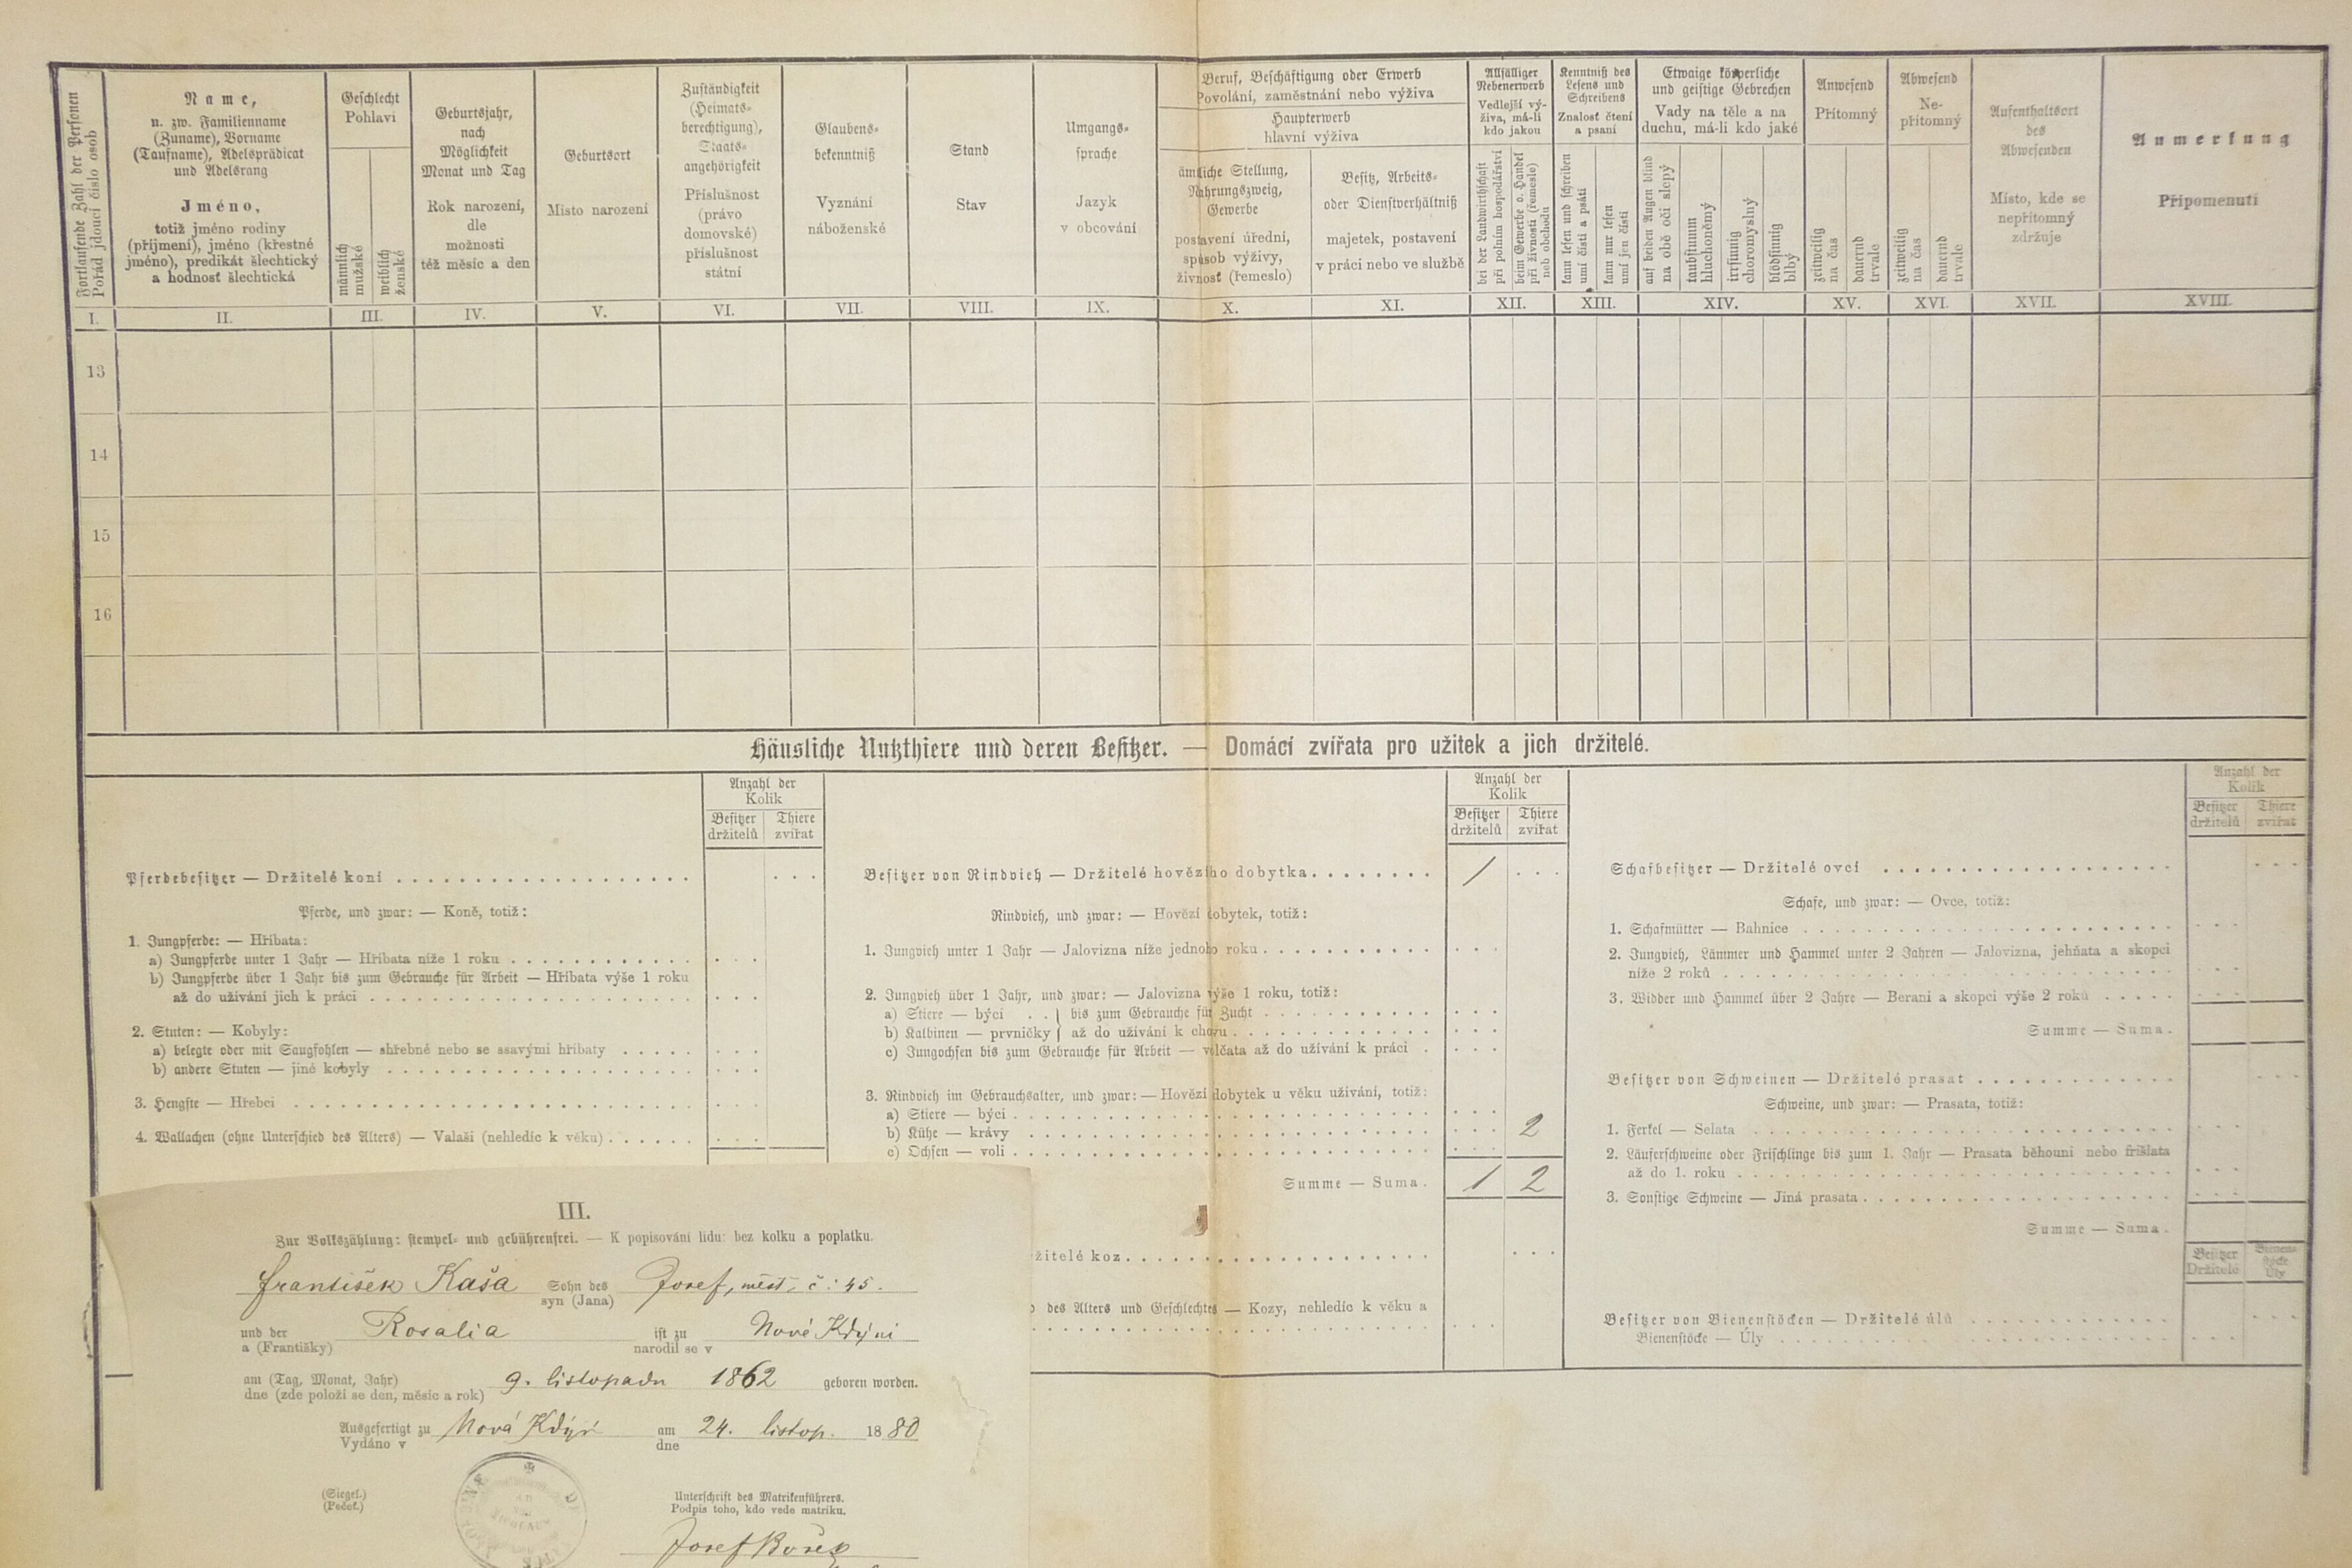 Fortlaufende Zahl der Personen
Pořád jdoucí číslo osob
Name,
n. zw. Familienname
(Zuname), Vorname
(Taufname), Adelsprädicat
und Adelsrang
Jméno,
totiž jméno rodiny
(příjmení), jméno (křestné
jméno), predikát šlechtický
a hodnosť šlechtická
Geschlecht
Pohlaví
männlich
mužské
weiblich
ženské
Geburtsjahr,
nach
Möglichkeit
Monat und Tag
Rok narození,
dle
možnosti
též měsíc a den
Geburtsort
Místo narození
Zuständigkeit
(Heimats-
berechtigung),
Staats-
angehörigkeit
Příslušnost
(právo
domovské)
příslušnost
státní
Glaubens-
bekenntniß
Vyznání
náboženské
Stand
Stav
Umgangs-
sprache
Jazyk
v obcování
Beruf, Beschäftigung oder Erwerb
Povolání, zaměstnání nebo výživa
Haupterwerb
hlavní výživa
ämtliche Stellung,
Nahrungszweig,
Gewerbe
postavení úřední,
spůsob výživy,
živnosť (řemeslo)
Besitz, Arbeits-
oder Dienstverhältniß
majetek, postavení
v práci nebo ve službě
Allfälliger
Nebenerwerb
Vedlejší vý-
živa, má-li
kdo jakou
bei der Landwirthschaft
při polním hospodářství
beim Gewerbe o. Handel
při živnosti (řemesle)
neb obchodu
Kenntniß des
Lesens und
Schreibens
Znalost čtení
a psaní
kann lesen und schreiben
umí čísti a psáti
kann nur lesen
umí jen čísti
Etwaige körperliche
und geistige Gebrechen
Vady na těle a na
duchu, má-li kdo jaké
auf beiden Augen blind
na obě oči slepý
taubstumm
hluchoněmý
irrsinnig
choromyslný
blödsinnig
blbý
Anwesend
Přítomný
zeitweilig
na čas
dauernd
trvale
Abwesend
Ne-
přítomný
zeitweilig
na čas
dauernd
trvale
Aufenthaltsort
des
Abwesenden
Místo, kde se
nepřítomný
zdržuje
Anmerkung
Připomenutí
I. II. III. IV. V. VI. VII. VIII. IX. X. XI. XII. XIII. XIV. XV. XVI. XVII. XVIII.
13
14
15
16
Häusliche Nutzthiere und deren Besitzer. — Domácí zvířata pro užitek a jich držitelé.
Anzahl der
Kolik
Besitzer
držitelů
Thiere
zvířat
Pferdebesitzer — Držitelé koní
Pferde, und zwar: — Koně, totiž:
1. Jungpferde: — Hříbata:
a) Jungpferde unter 1 Jahr — Hříbata níže 1 roku
b) Jungpferde über 1 Jahr bis zum Gebrauche für Arbeit — Hříbata výše 1 roku
až do užívání jich k práci
2. Stuten: — Kobyly:
a) belegte oder mit Saugfohlen — shřebné nebo se ssavými hříbaty
b) andere Stuten — jiné kobyly
3. Hengste — Hřebci
4. Wallachen (ohne Unterschied des Alters) — Valaši (nehledíc k věku)
Anzahl der
Kolik
Besitzer
držitelů
Thiere
zvířat
Besitzer von Rindvieh — Držitelé hovězího dobytka 1
Rindvieh, und zwar: — Hovězí dobytek, totiž:
1. Jungvieh unter 1 Jahr — Jalovizna níže jednoho roku
2. Jungvieh über 1 Jahr, und zwar: — Jalovizna výše 1 roku, totiž:
a) Stiere — býci } bis zum Gebrauche für Zucht
b) Kalbinen — prvničky } až do užívání k chovu
c) Jungochsen bis zum Gebrauche für Arbeit — volčata až do užívání k práci
3. Rindvieh im Gebrauchsalter, und zwar: — Hovězí dobytek u věku užívání, totiž:
a) Stiere — býci
b) Kühe — krávy 2
c) Ochsen — voli
Summe — Suma. 1 2
žitelé koz
des Alters und Geschlechtes — Kozy, nehledíc k věku a
Anzahl der
Kolik
Besitzer
držitelů
Thiere
zvířat
Schafbesitzer — Držitelé ovcí
Schafe, und zwar: — Ovce, totiž:
1. Schafmütter — Bahnice
2. Jungvieh, Lämmer und Hammel unter 2 Jahren — Jalovizna, jehňata a skopci
níže 2 roků
3. Widder und Hammel über 2 Jahre — Berani a skopci výše 2 roků
Summe — Suma.
Besitzer von Schweinen — Držitelé prasat
Schweine, und zwar: — Prasata, totiž:
1. Ferkel — Selata
2. Läuferschweine oder Frischlinge bis zum 1. Jahr — Prasata běhouni nebo frišlata
až do 1. roku
3. Sonstige Schweine — Jiná prasata
Summe — Suma.
Besitzer
Držitelé
Bienen-
stöcke
Úly
Besitzer von Bienenstöcken — Držitelé úlů
Bienenstöcke — Úly
III.
Zur Volkszählung: stempel- und gebührenfrei. — K popisování lidu: bez kolku a poplatku.
František Kaša Sohn des Josef, měšť. č: 45.
syn (Jana)
und der Rosalia ist zu Nové Kdýni
a (Františky) narodil se v
am (Tag, Monat, Jahr) 9. listopadu 1862 geboren worden.
dne (zde položí se den, měsíc a rok)
Ausgefertigt zu Nová Kdýň am 24. listop. 1880
Vydáno v dne
(Siegel.)
(Pečeť.)
Unterschrift des Matrikenführers.
Podpis toho, kdo vede matriku.
Josef